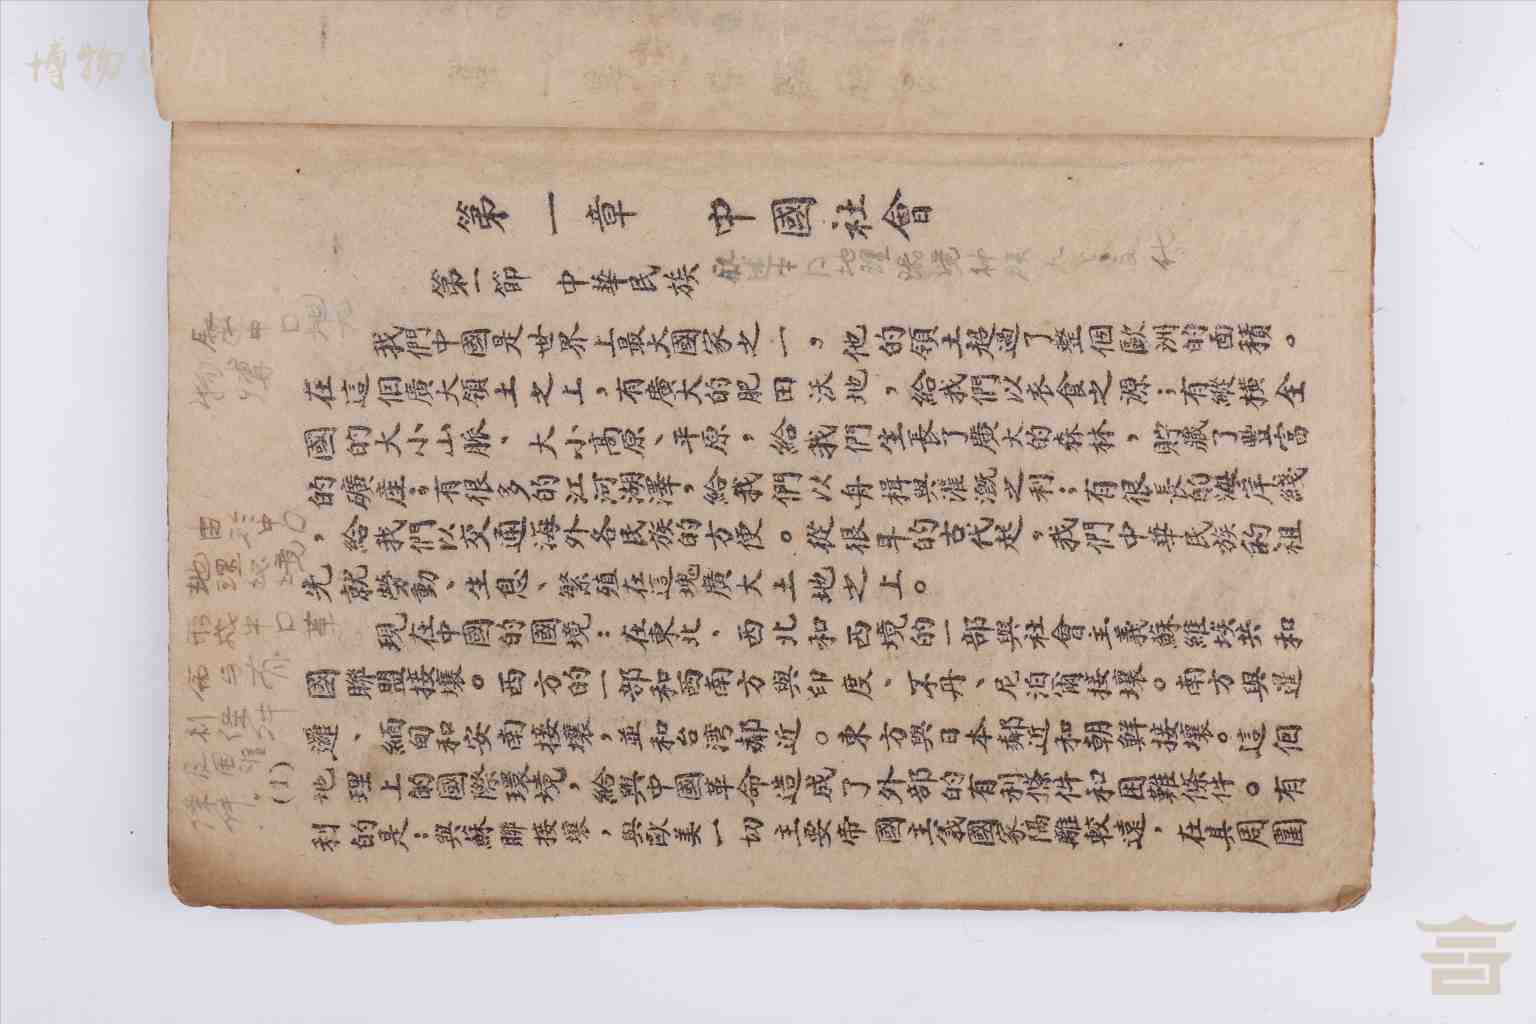 第一章 中國社會
第一節 中華民族
我們中國是世界上最大國家之一，他的領土超過了整個歐洲的面積。
在這個廣大領土之上，有廣大的肥田沃地，給我們以衣食之源；有縱橫全
國的大小山脈、大小高原、平原，給我們生長了廣大的森林，貯藏了豐富
的礦產；有很多的江河湖澤，給我們以舟楫與灌溉之利；有很長的海岸綫
，給我們以交通海外各民族的方便。從很早的古代起，我們中華民族的祖
先就勞動、生息、繁殖在這塊廣大土地之上。
現在中國的國境：在東北、西北和西境的一部與社會主義蘇維埃共和
國聯盟接壤。西方的一部和西南方與印度、不丹、尼泊爾接壤。南方與暹
邏、緬甸和安南接壤，並和台灣鄰近。東方與日本鄰近和朝鮮接壤。這個
地理上的國際環境，給與中國革命造成了外部的有利條件和困難條件。有
利的是：與蘇聯接壤，與歐美一切主要帝國主義國家隔離較遠，在其周圍
博物